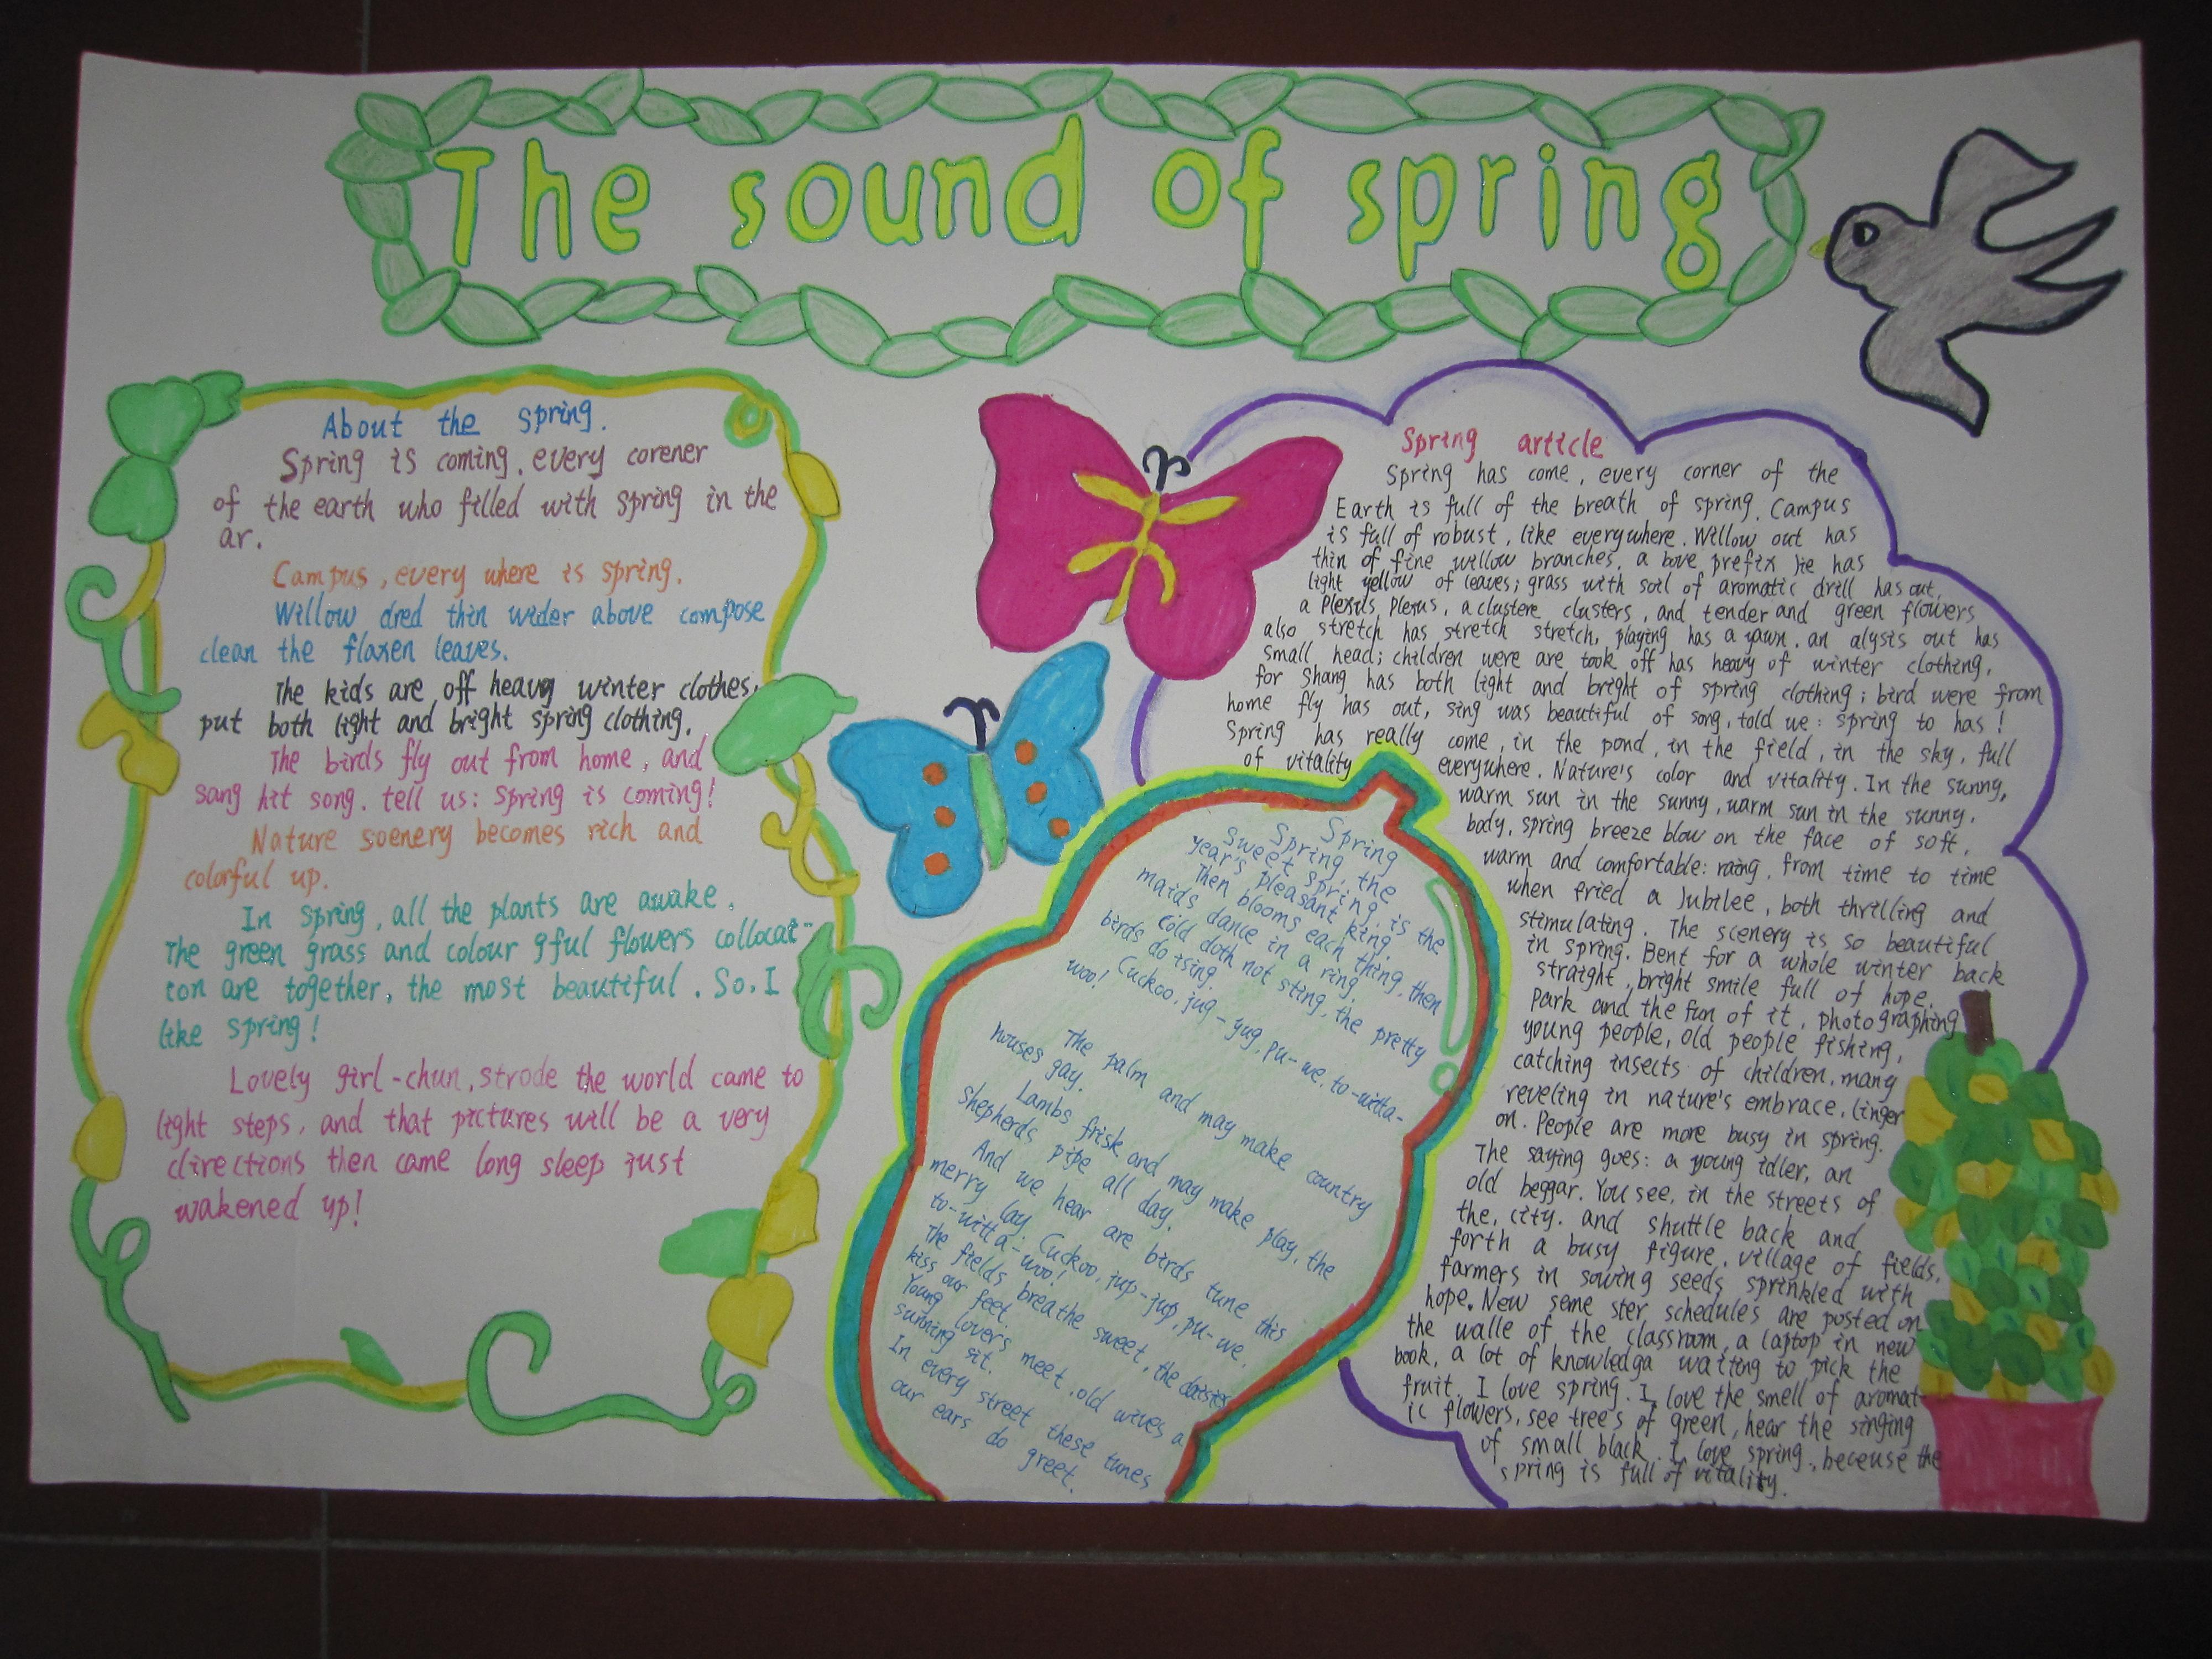 The sound of spring
About the spring.
Spring is coming, every corener
of the earth who filled with spring in the
ar.
Campus, every where is spring.
Willow dred thin wider above compose
clean the flaxen leaves.
The kids are off heavy winter clothes,
put both light and bright spring clothing.
The birds fly out from home, and
sang hit song. tell us: spring is coming!
Nature scenery becomes rich and
colorful up.
In spring, all the plants are awake.
The green grass and colour gful flowers collocat-
ion are together, the most beautiful. So, I
like spring!
Lovely girl-chun, strode the world came to
light steps, and that pictures will be a very
directions then came long sleep just
wakened up!
Spring
Spring, the
Sweet spring, is the
year's pleasant king.
Then blooms each thing, then
maids dance in a ring.
Cold doth not sting, the pretty
birds do ising.
Cuckoo, jug-yug, pu-we, to-witta-
woo!
The palm and may make country
houses gay.
Lambs frisk and may make play, the
shepherds pipe all day.
And we hear are birds tune this
merry lay. Cuckoo, jup-jup, pu-we,
to-witta-woo!
The fields breathe sweet, the daisies
kiss our feet.
Young lovers meet, old wives a
sunning sit.
In every street these tunes
our ears do greet.
Spring article
Spring has come, every corner of the
Earth is full of the breath of spring. Campus
is full of robust, like everywhere. Willow out has
thin of fine willow branches, a bove prefix lie has
light yellow of leaves; grass with soil of aromatic drill has out,
a Plexus Plexus, a clustere clusters, and tender and green flowers
also stretch has stretch stretch, playing has a yawn, an alysis out has
small head; children were are took off has heavy of winter clothing,
for Shang has both light and bright of spring clothing; bird were from
home fly has out, sing was beautiful of song, told we: spring to has!
Spring has really come, in the pond, in the field, in the sky, full
of vitality everywhere. Nature's color and vitality. In the sunny,
warm sun in the sunny, warm sun in the sunny.
body, spring breeze blow on the face of soft,
warm and comfortable: from time to time
when fried a Jubilee, both thrilling and
stimulating. The scenery is so beautiful
in spring. Bent for a whole winter back
straight, bright smile full of hope.
Park and the fun of it, photographing
young people, old people fishing,
catching insects of children, many
reveling in nature's embrace, linger
on. People are more busy in spring.
The saying goes: a young idler, an
old beggar. You see, in the streets of
the, city. and shuttle back and
forth a busy figure, village of fields,
farmers in sowing seeds sprinkled with
hope. New seme ster schedules are posted on
the walle of the classroom, a laptop in new
book, a lot of knowledga waiting to pick the
fruit. I love spring. I love the smell of aromat-
ic flowers, see trees of green, hear the singing
of small black. I love spring, beceuse the
spring is full of vitality.